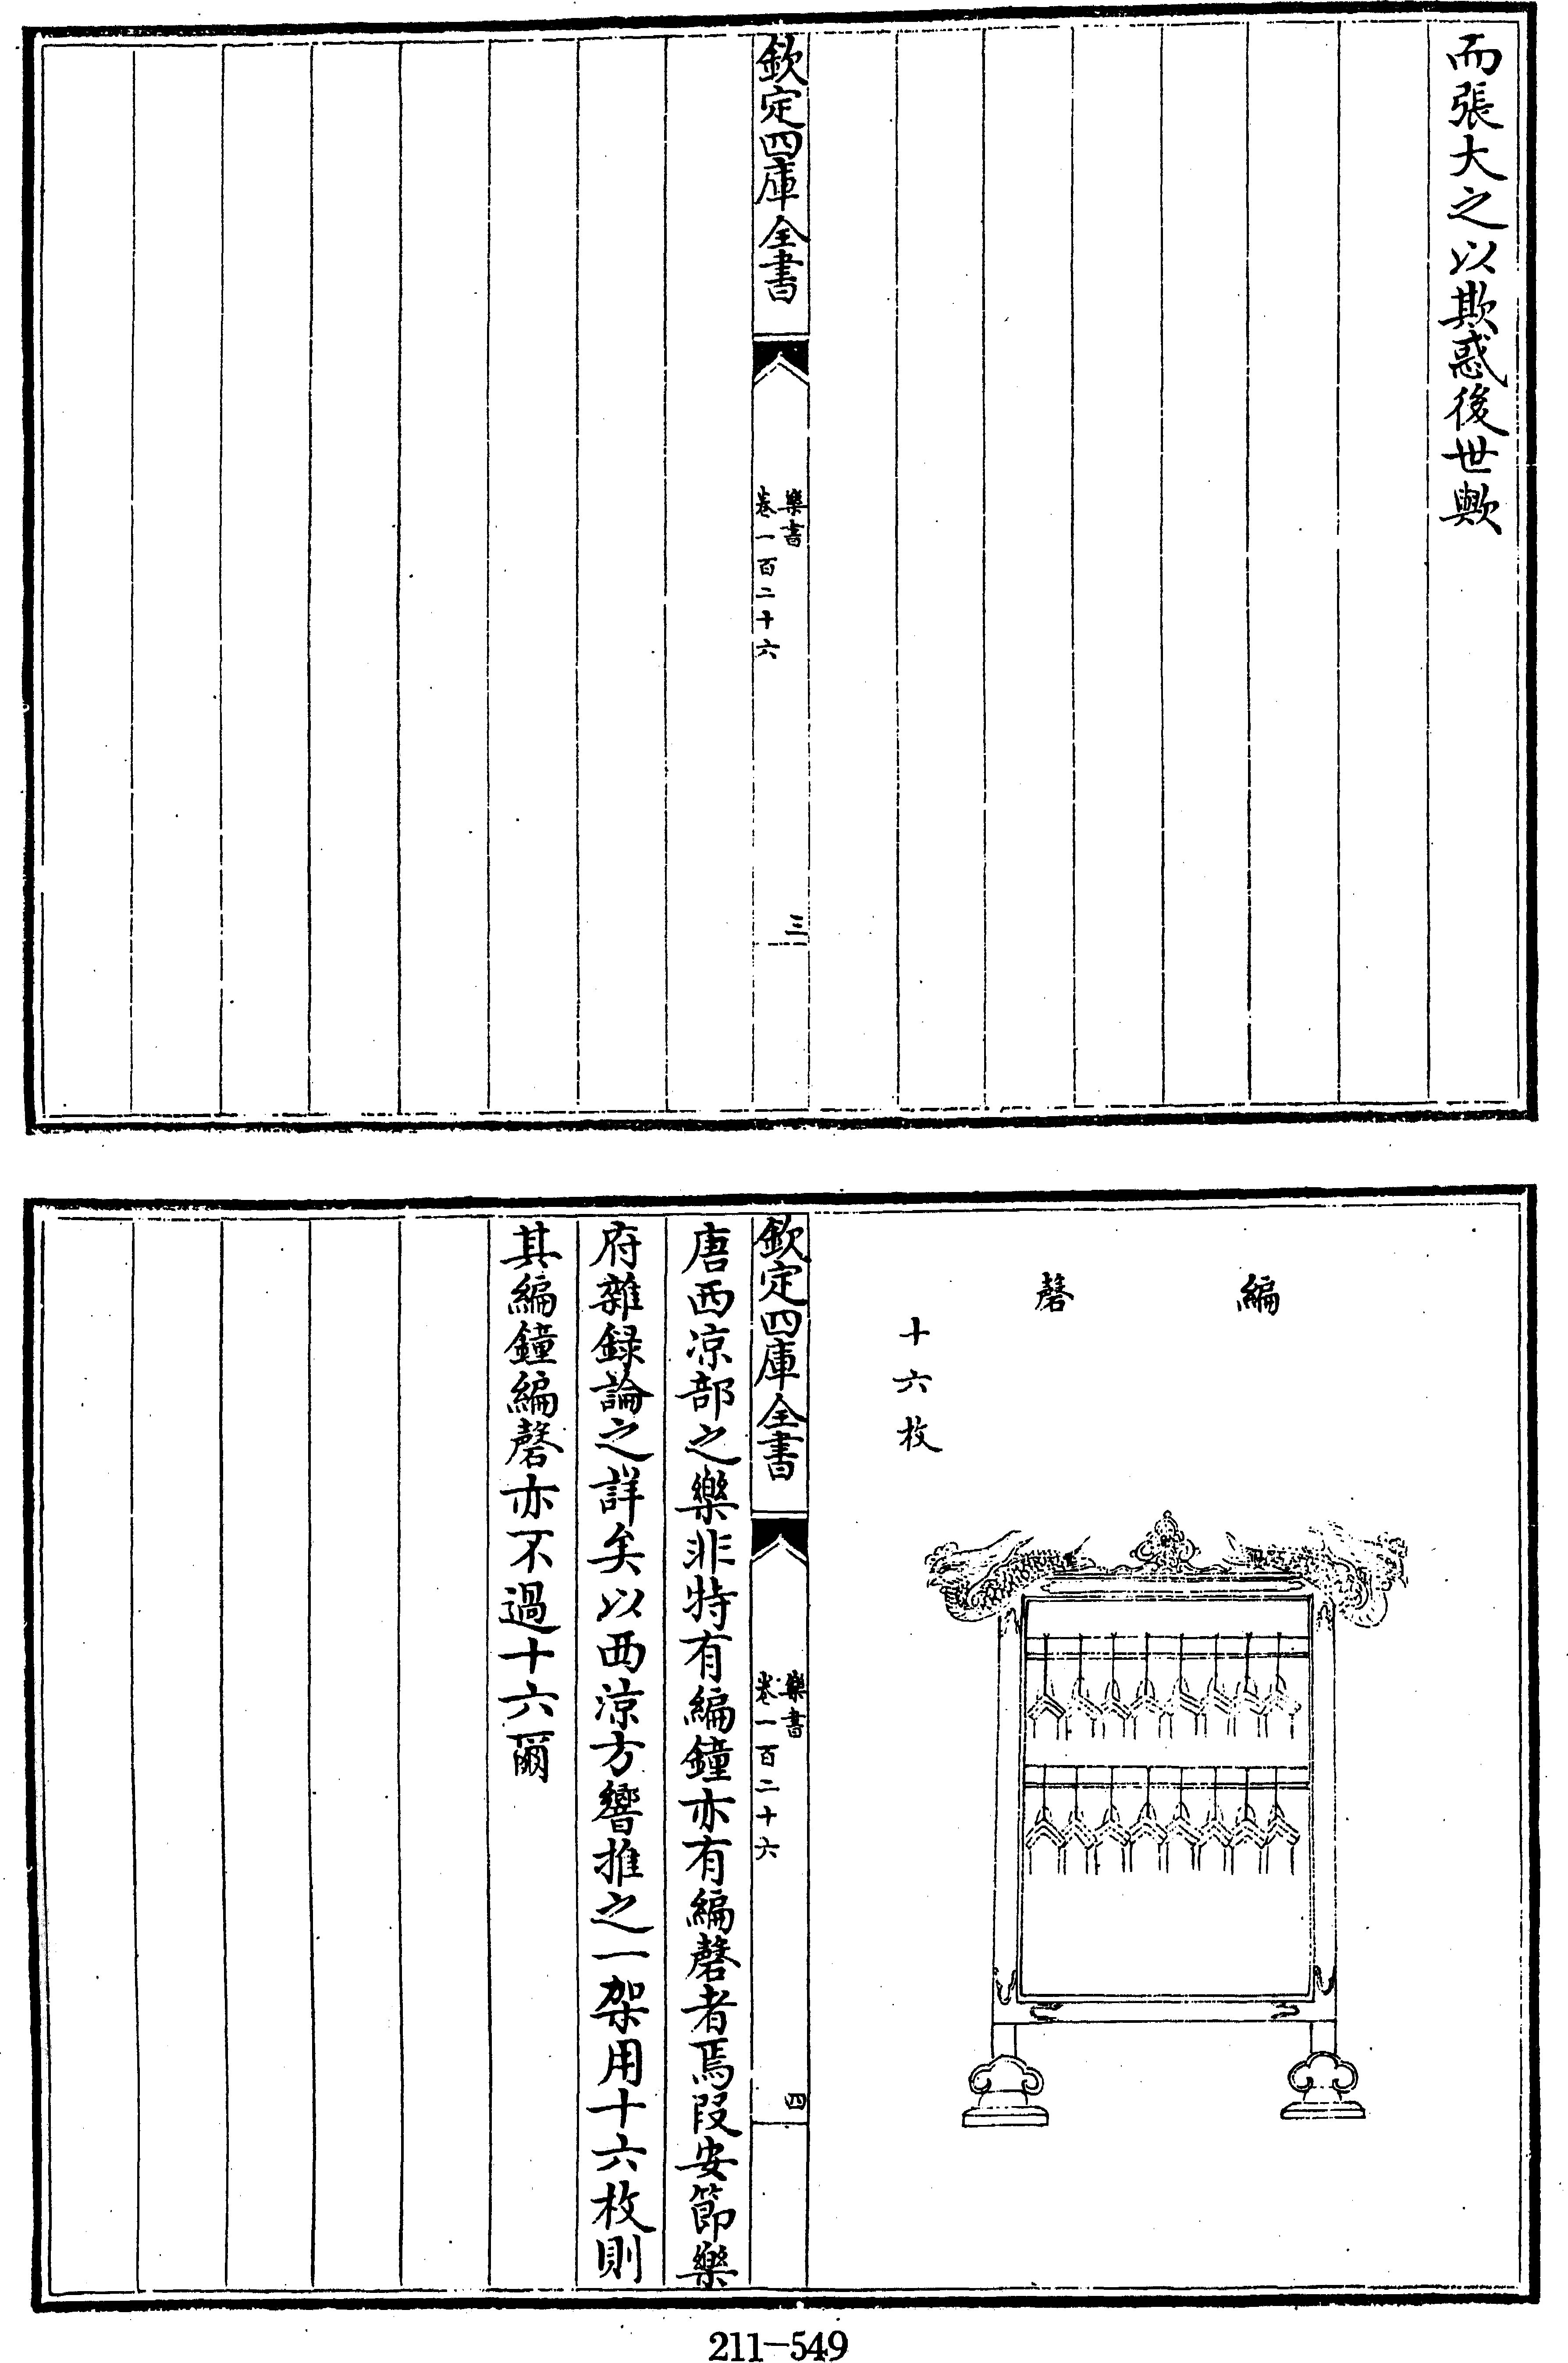 而張大之以欺惑後世歟
欽定四庫全書
樂書
卷一百二十六
三
編
磬
十六枚
欽定四庫全書
樂書
卷一百二十六
四
唐西凉部之樂非特有編鐘亦有編磬者焉叚安節樂
府雜録論之詳矣以西涼方響推之一架用十六枚則
其編鐘編磬亦不過十六爾
211-549